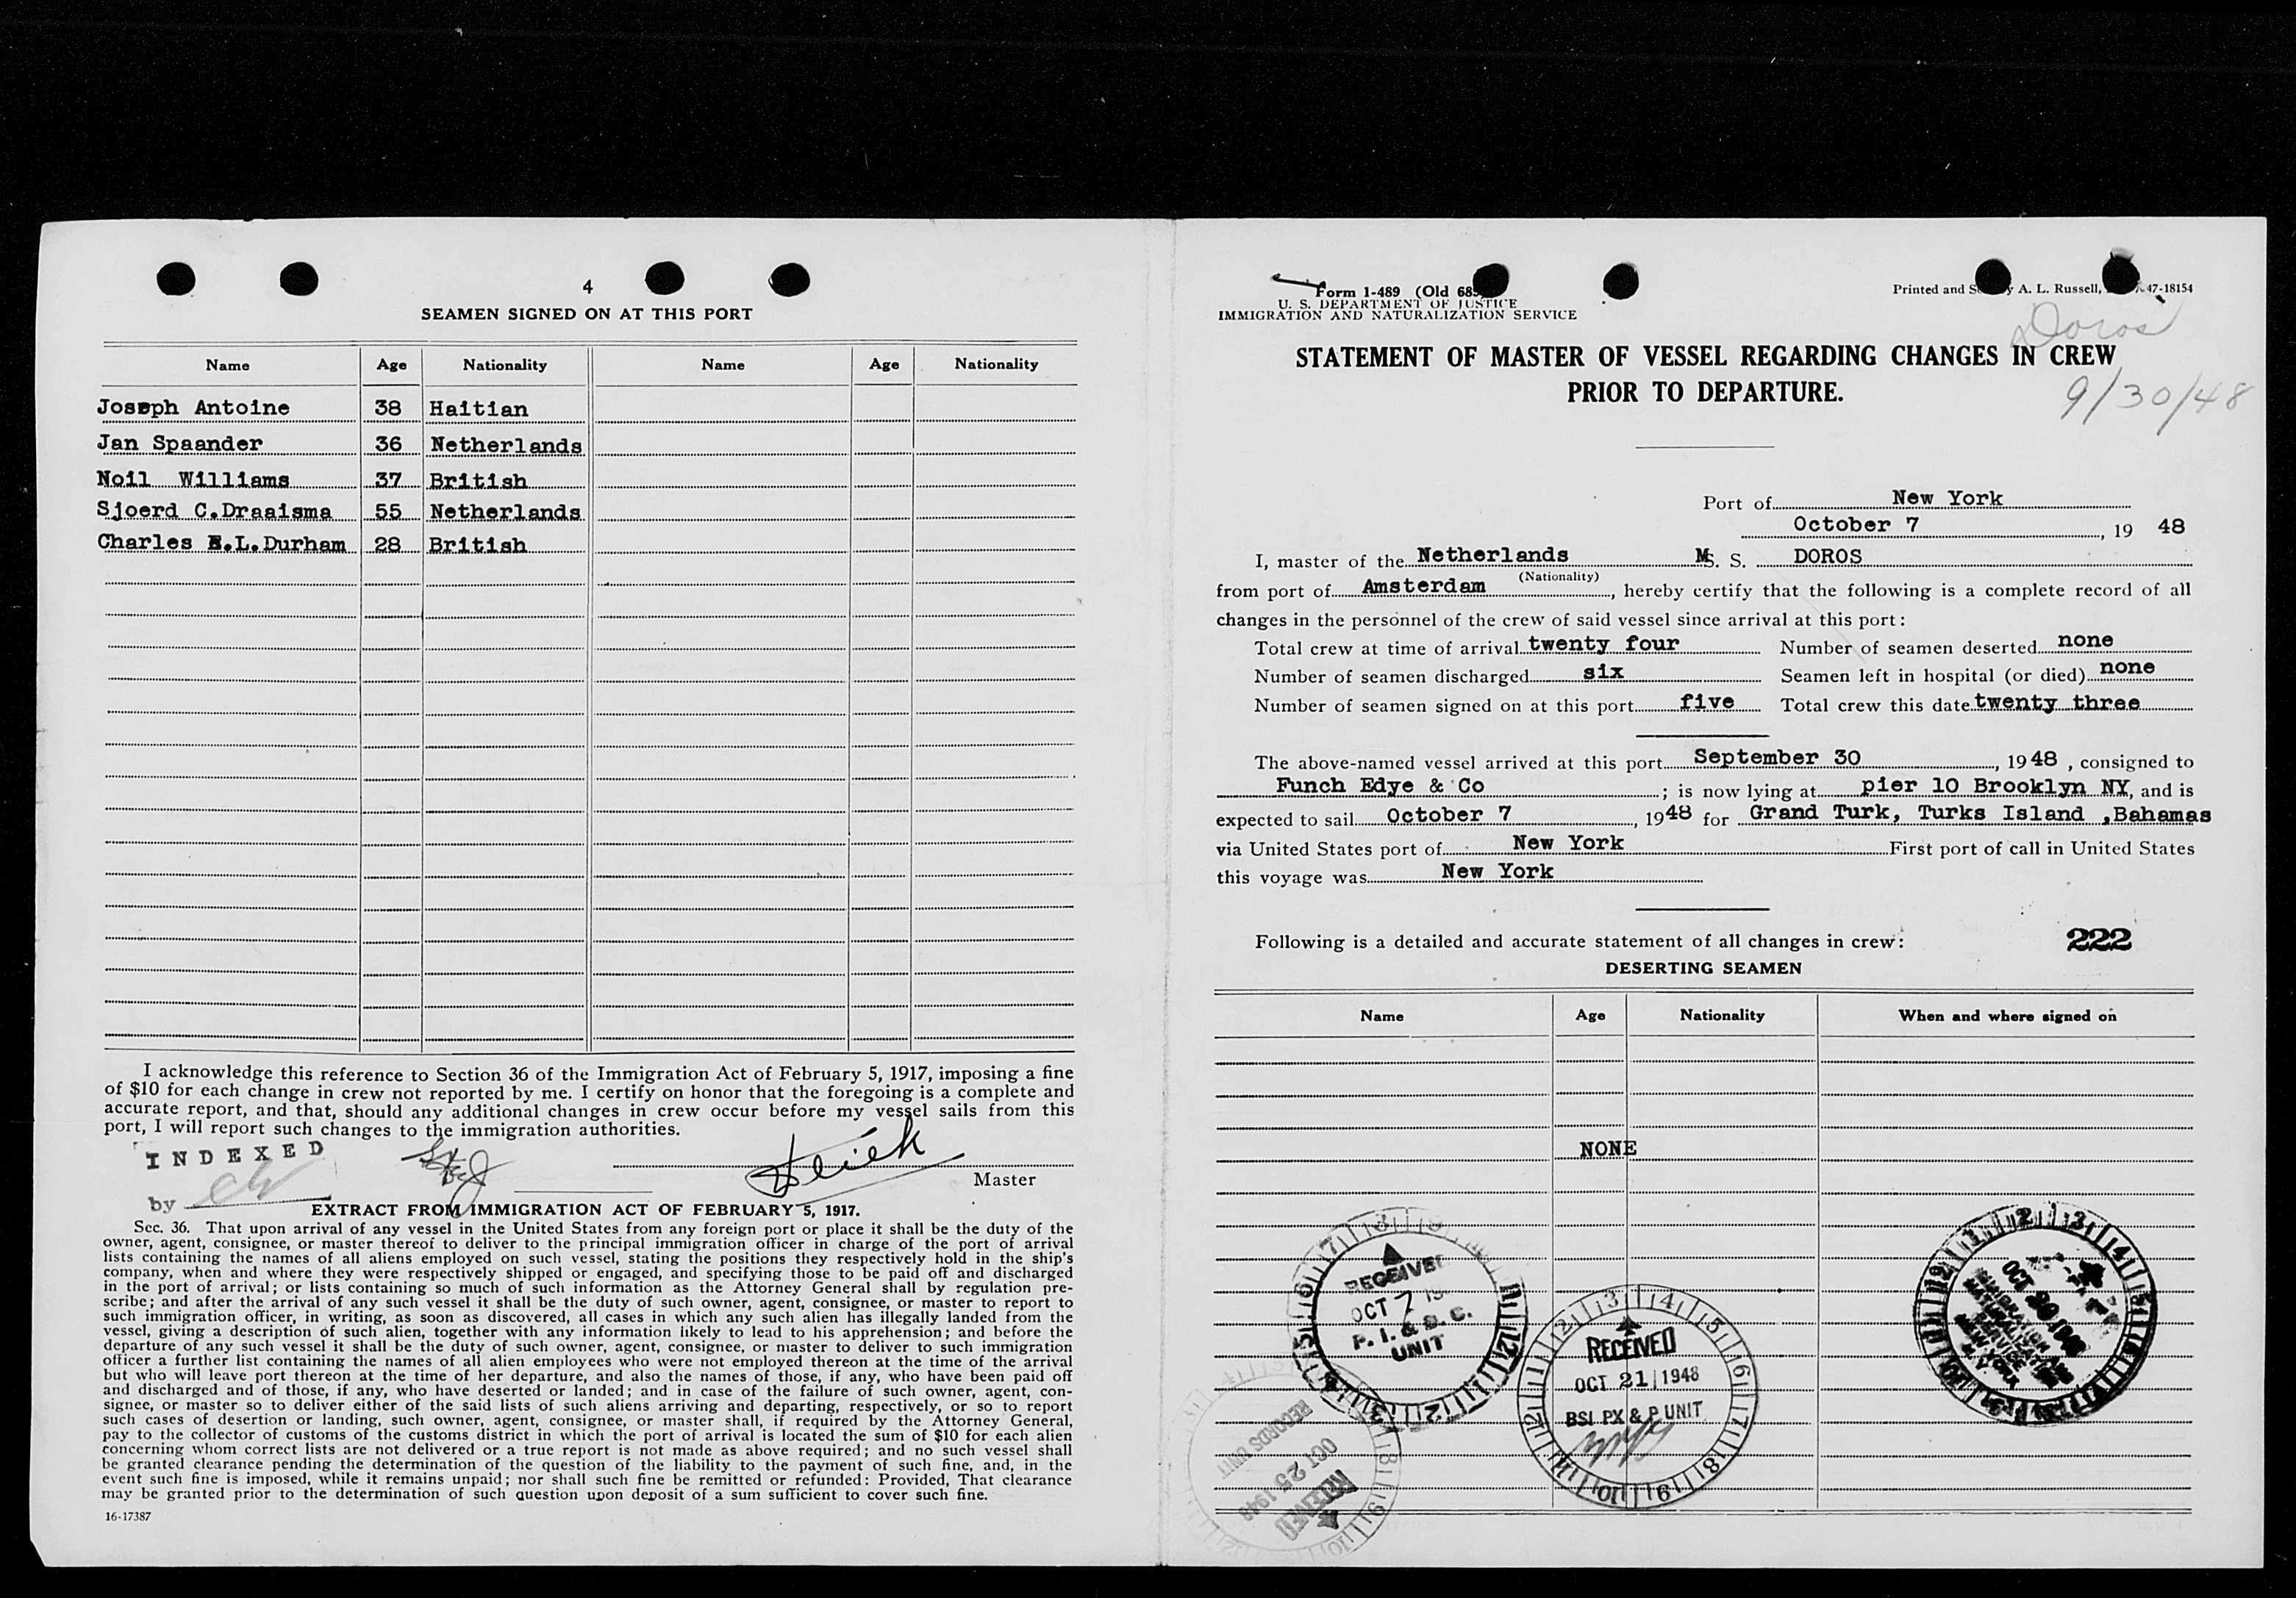 4
SEAMEN SIGNED ON AT THIS PORT
Name Age Nationality Name Age Nationality
Joseph Antoine 38 Haitian
Jan Spaander 36 Netherlands
Noil Williams 37 British
Sjoerd C.Draaisma 55 Netherlands
Charles E.L.Durham 28 British
I acknowledge this reference to Section 36 of the Immigration Act of February 5, 1917, imposing a fine
of $10 for each change in crew not reported by me. I certify on honor that the foregoing is a complete and
accurate report, and that, should any additional changes in crew occur before my vessel sails from this
port, I will report such changes to the immigration authorities.
INDEXED
by
Master
EXTRACT FROM IMMIGRATION ACT OF FEBRUARY 5, 1917.
Sec. 36. That upon arrival of any vessel in the United States from any foreign port or place it shall be the duty of the
owner, agent, consignee, or master thereof to deliver to the principal immigration officer in charge of the port of arrival
lists containing the names of all aliens employed on such vessel, stating the positions they respectively hold in the ship's
company, when and where they were respectively shipped or engaged, and specifying those to be paid off and discharged
in the port of arrival; or lists containing so much of such information as the Attorney General shall by regulation pre-
scribe; and after the arrival of any such vessel it shall be the duty of such owner, agent, consignee, or master to report to
such immigration officer, in writing, as soon as discovered, all cases in which any such alien has illegally landed from the
vessel, giving a description of such alien, together with any information likely to lead to his apprehension; and before the
departure of any such vessel it shall be the duty of such owner, agent, consignee, or master to deliver to such immigration
officer a further list containing the names of all alien employees who were not employed thereon at the time of the arrival
but who will leave port thereon at the time of her departure, and also the names of those, if any, who have been paid off
and discharged and of those, if any, who have deserted or landed; and in case of the failure of such owner, agent, con-
signee, or master so to deliver either of the said lists of such aliens arriving and departing, respectively, or so to report
such cases of desertion or landing, such owner, agent, consignee, or master shall, if required by the Attorney General,
pay to the collector of customs of the customs district in which the port of arrival is located the sum of $10 for each alien
concerning whom correct lists are not delivered or a true report is not made as above required; and no such vessel shall
be granted clearance pending the determination of the question of the liability to the payment of such fine, and, in the
event such fine is imposed, while it remains unpaid; nor shall such fine be remitted or refunded: Provided, That clearance
may be granted prior to the determination of such question upon deposit of a sum sufficient to cover such fine.
16-17387
Form 1-489 (Old 68
U. S. DEPARTMENT OF JUSTICE
IMMIGRATION AND NATURALIZATION SERVICE
Printed and S y A. L. Russell, 47-18154
Doros
STATEMENT OF MASTER OF VESSEL REGARDING CHANGES IN CREW
PRIOR TO DEPARTURE.
9/30/48
Port of New York
October 7, 19 48
I, master of the Netherlands M. S. DOROS
(Nationality)
from port of Amsterdam, hereby certify that the following is a complete record of all
changes in the personnel of the crew of said vessel since arrival at this port:
Total crew at time of arrival twenty four Number of seamen deserted none
Number of seamen discharged six Seamen left in hospital (or died) none
Number of seamen signed on at this port five Total crew this date twenty three
The above-named vessel arrived at this port September 30, 1948, consigned to
Funch Edye & Co; is now lying at pier 10 Brooklyn NY, and is
expected to sail October 7, 1948 for Grand Turk, Turks Island ,Bahamas
via United States port of New York First port of call in United States
this voyage was New York
Following is a detailed and accurate statement of all changes in crew: 222
DESERTING SEAMEN
Name Age Nationality When and where signed on
NONE
RECEIVED
OCT 7 19
P. I. & D. C.
UNIT
RECEIVED
OCT 21 1948
BSI PX & P UNIT
OCT 20 1948
IMMIGRATION
NEW YORK
RECEIVED
OCT 25 1948
RECORDS UNIT